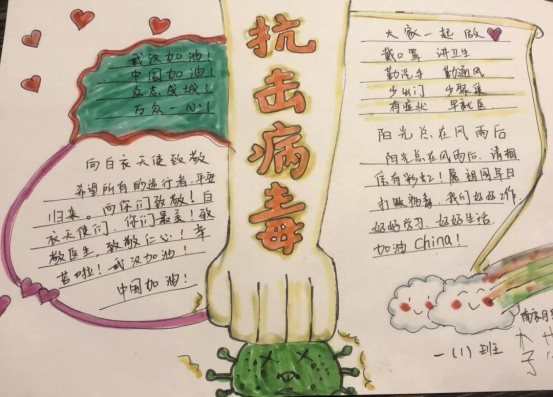 抗击病毒
武汉加油！
中国加油！
众志成城！
万众一心！
向白衣天使致敬
希望所有的逆行者，平安
归来。向你们致敬！白
衣天使们，你们最美！致
敬医生，致敬仁心！辛
苦啦！武汉加油！
中国加油！
大家一起做
戴口罩 讲卫生
勤洗手 勤通风
少出门 少聚集
有症状 早就医
阳光总在风雨后
阳光总在风雨后，请相
信有彩虹！愿祖国早日
打败病毒，我们好好工作，
好好学习，好好生活，
加油China！
一（1）班